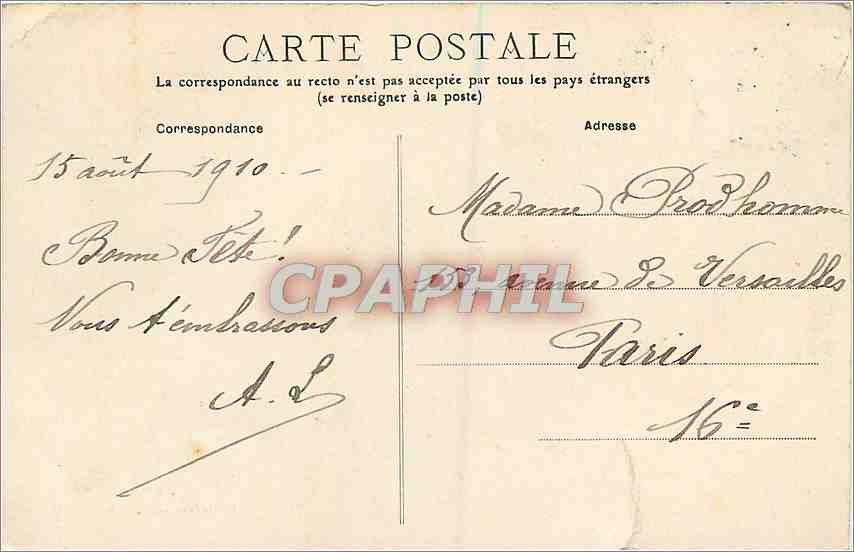 CARTE POSTALE
La correspondance au recto n'est pas acceptée par tous les pays étrangers
(se renseigner à la poste)
Correspondance
15 août 1910. –
Bonne Fête!
Vous t'embrassons
A. L
Adresse
Madame Prodhomme
153, avenue de Versailles
Paris
16e
CPAPHIL